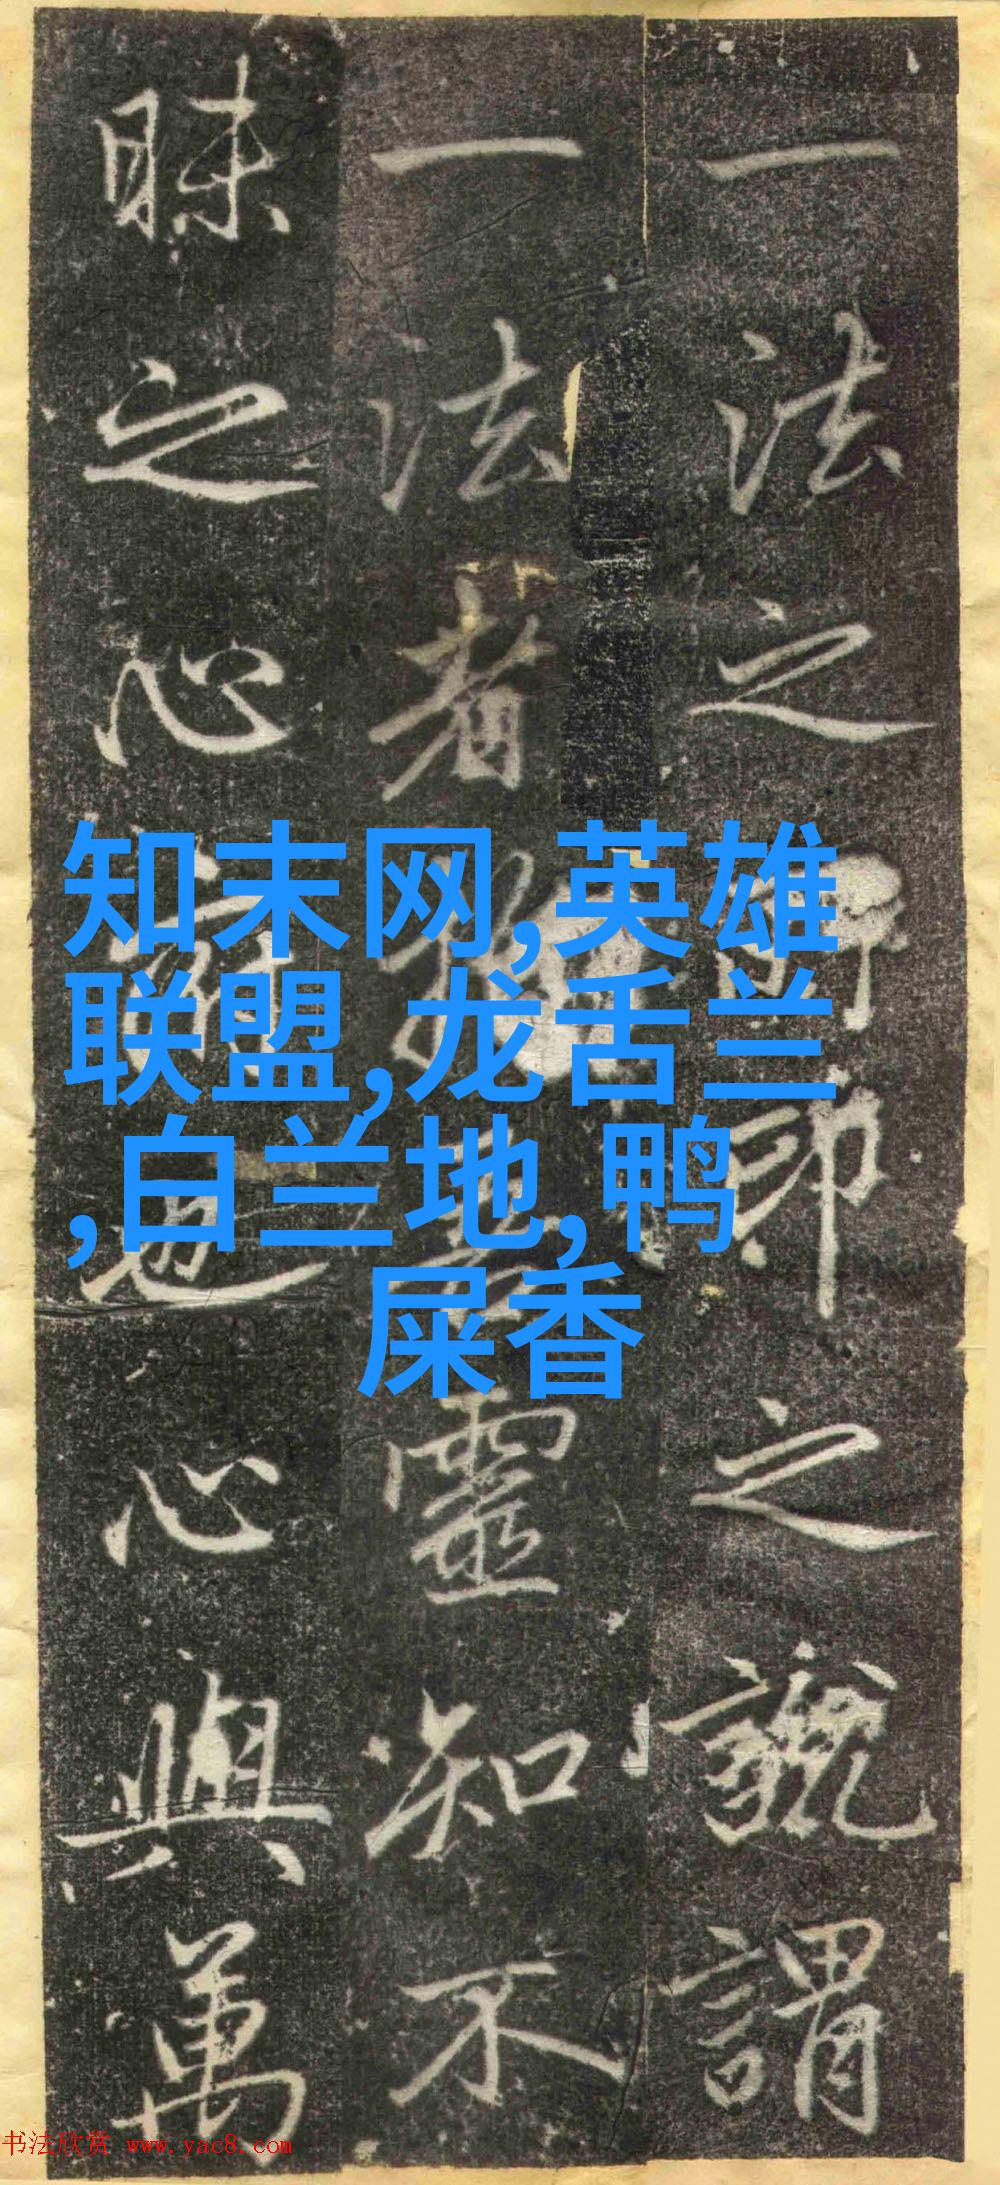 一法之所印之说謂
一法者
靈知不
昧之心
也心與萬
知末网,英雄
联盟,龙舌兰
,白兰地,鸭
屎香
书法欣赏 www.yac8.com